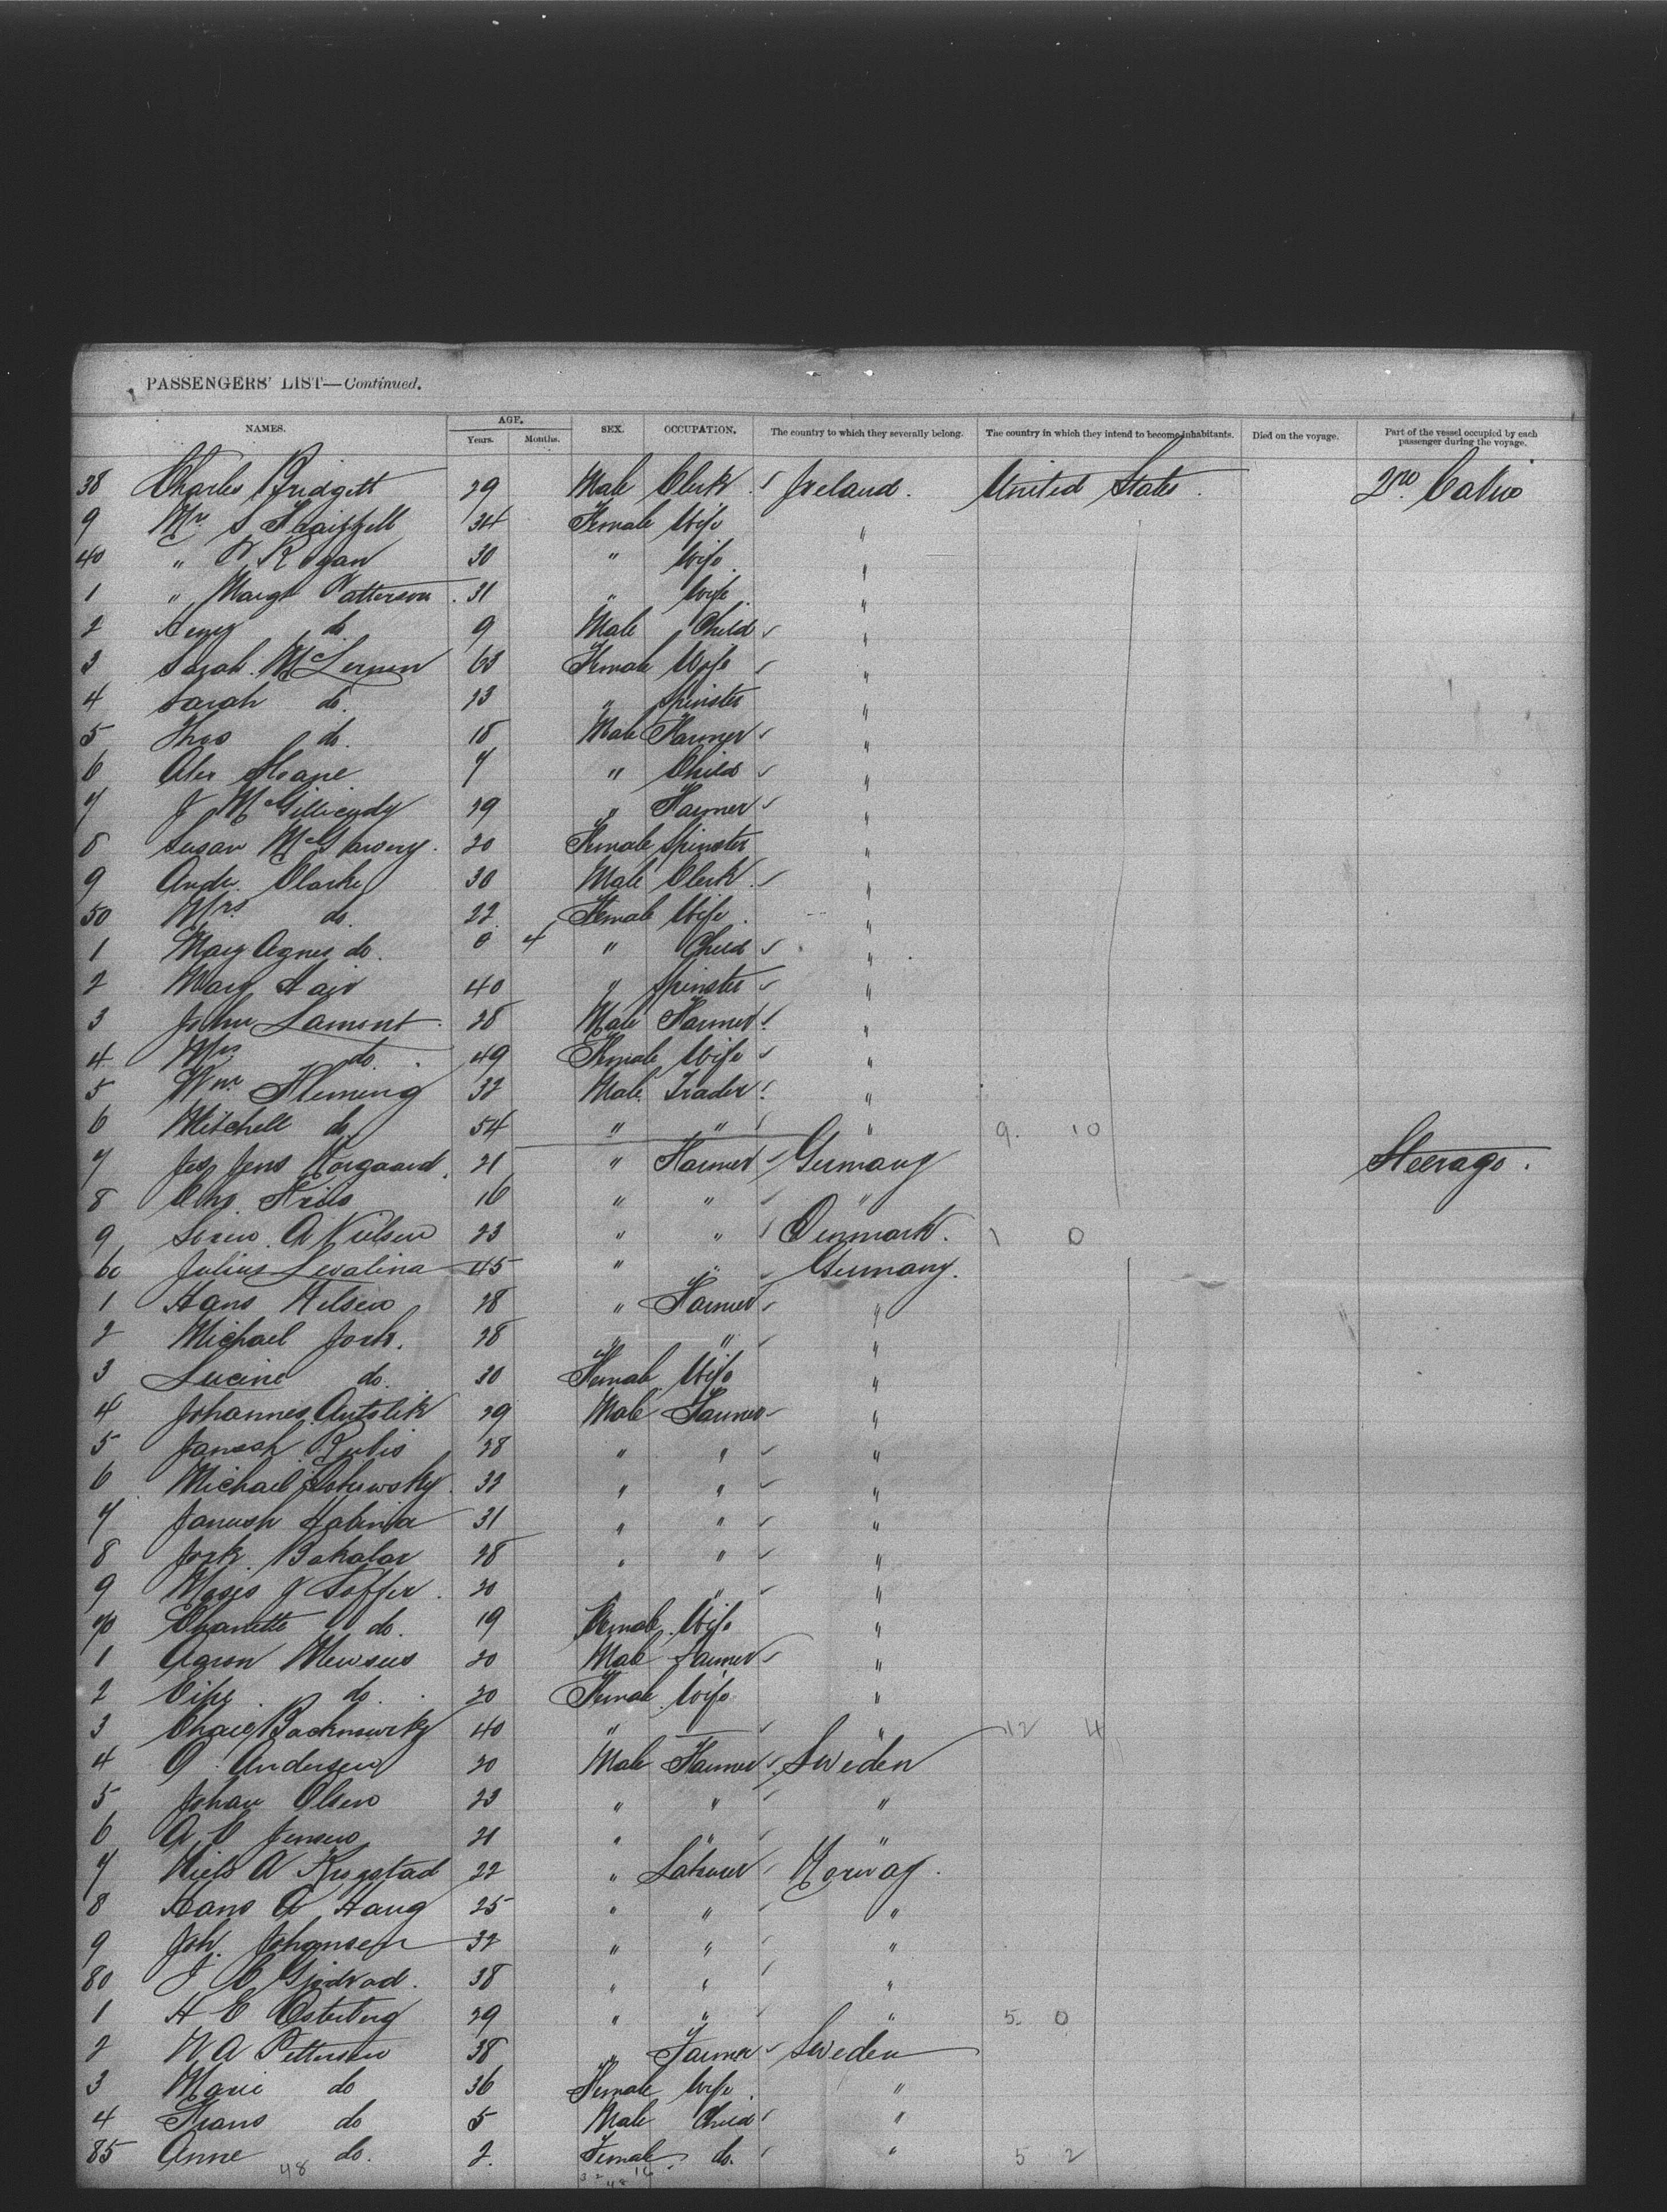 PASSENGERS' LIST—Continued.
NAMES. AGE. SEX. OCCUPATION. The country to which they severally belong. The country in which they intend to become inhabitants. Died on the voyage. Part of the vessel occupied by each passenger during the voyage.
Years. Months.
38 Charles Bridgett 29 Male Clerk Ireland. United States. 2nd Cabin
9 34 Female Wife "
40 " Rogan 30 " Wife "
1 " Margt Patterson 31 " Wife "
2 Henry do 9 Male Child "
3 Sarah 63 Female Wife "
4 Sarah do. 23 " Spinster "
5 Thos do. 18 Male Farmer "
6 Alex Sloane 7 " Child "
7 J McGillicudy 29 " Farmer "
8 Susan 20 Female Spinster "
9 Andw. Clarke 30 Male Clerk "
50 Mrs do. 22 Female Wife "
1 Mary Agnes do. 0 4 " Child "
2 Mary Hair 40 " Spinster "
3 John Lamont 28 Male Farmer "
4 Mrs do. 49 Female Wife "
5 Wm Fleming 32 Male Trader "
6 Mitchell do 54 " " " 9. 10
7 Jes Jens Korgaard 21 " Farmer Germany Steerage.
8 Chr. Friis 16 " " "
9 Soren A Nielsen 23 " " Denmark. 1 0
60 Julius 45 " " Germany.
1 Hans Nelsen 28 " Farmer "
2 Michael Jork. 28 " " "
3 Lucine do. 30 Female Wife "
4 Johannes 29 Male Farmer "
5 Janosh Rubis 28 " " "
6 Michael 32 " " "
7 Janush 31 " " "
8 Jork Bakalar 28 " " "
9 Moses J Soffer 20 " "
70 Chanette do. 19 Female Wife "
1 Aaron 20 Male Farmer "
2 do. 20 Female Wife "
3 40 " " 12 4
4 Andersen 20 Male Farmer Sweden
5 Johan Olsen 23 " " "
6 A C Jensen 21 " " "
7 Niels A Krogstad 22 " Labourer Norway.
8 Hans A Haug 25 " " "
9 Joh. Johansen 32 " " "
80 J C 38 " " "
1 H E Osterberg 29 " " " 5. 0
2 N A Pettersen 38 " Farmer Sweden
3 Marie do 36 Female Wife "
4 Frans do 5 Male Child "
85 Anne do. 2. Female do. " 5 2
48 32 16
48